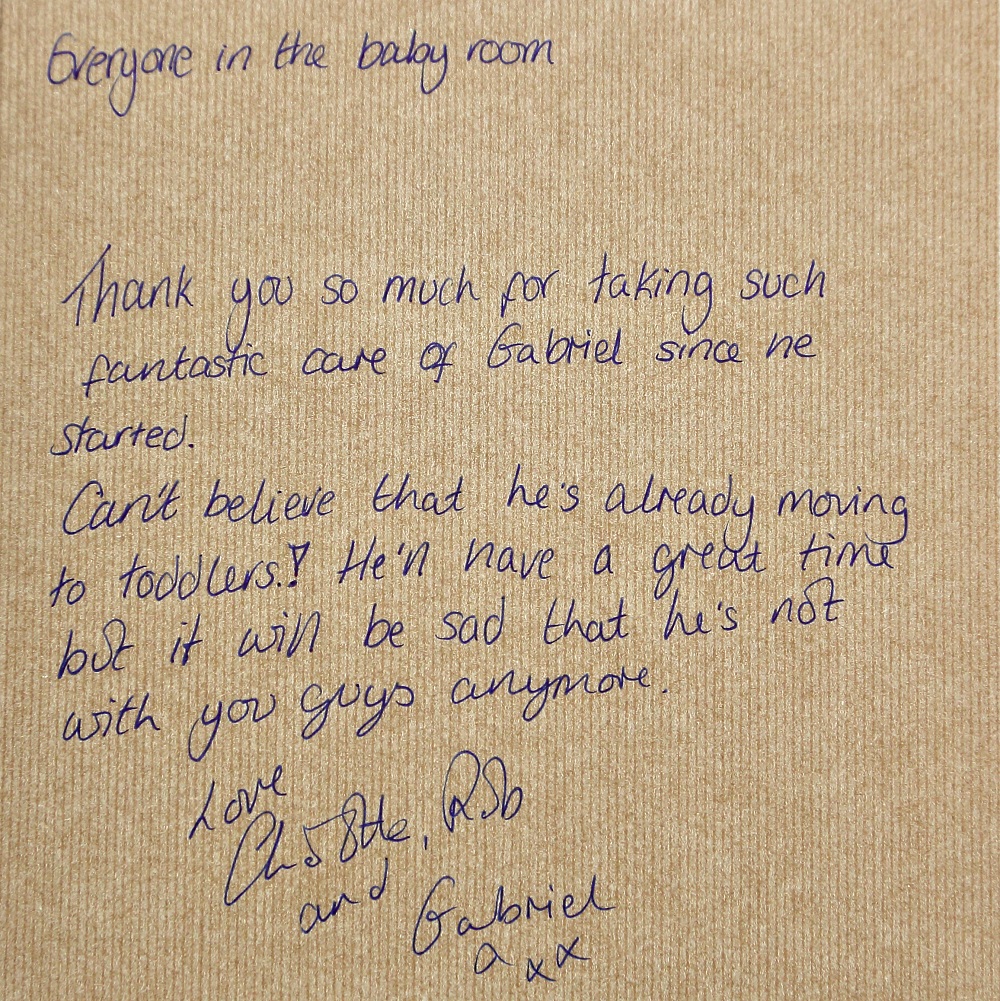 Everyone in the baby room
Thank you so much for taking such
fantastic care of Gabriel since he
started.
Can't believe that he's already moving
to toddlers.! He'll have a great time
but it will be sad that he's not
with you guys anymore.
Love
Charlotte, Rob
and Gabriel
xx